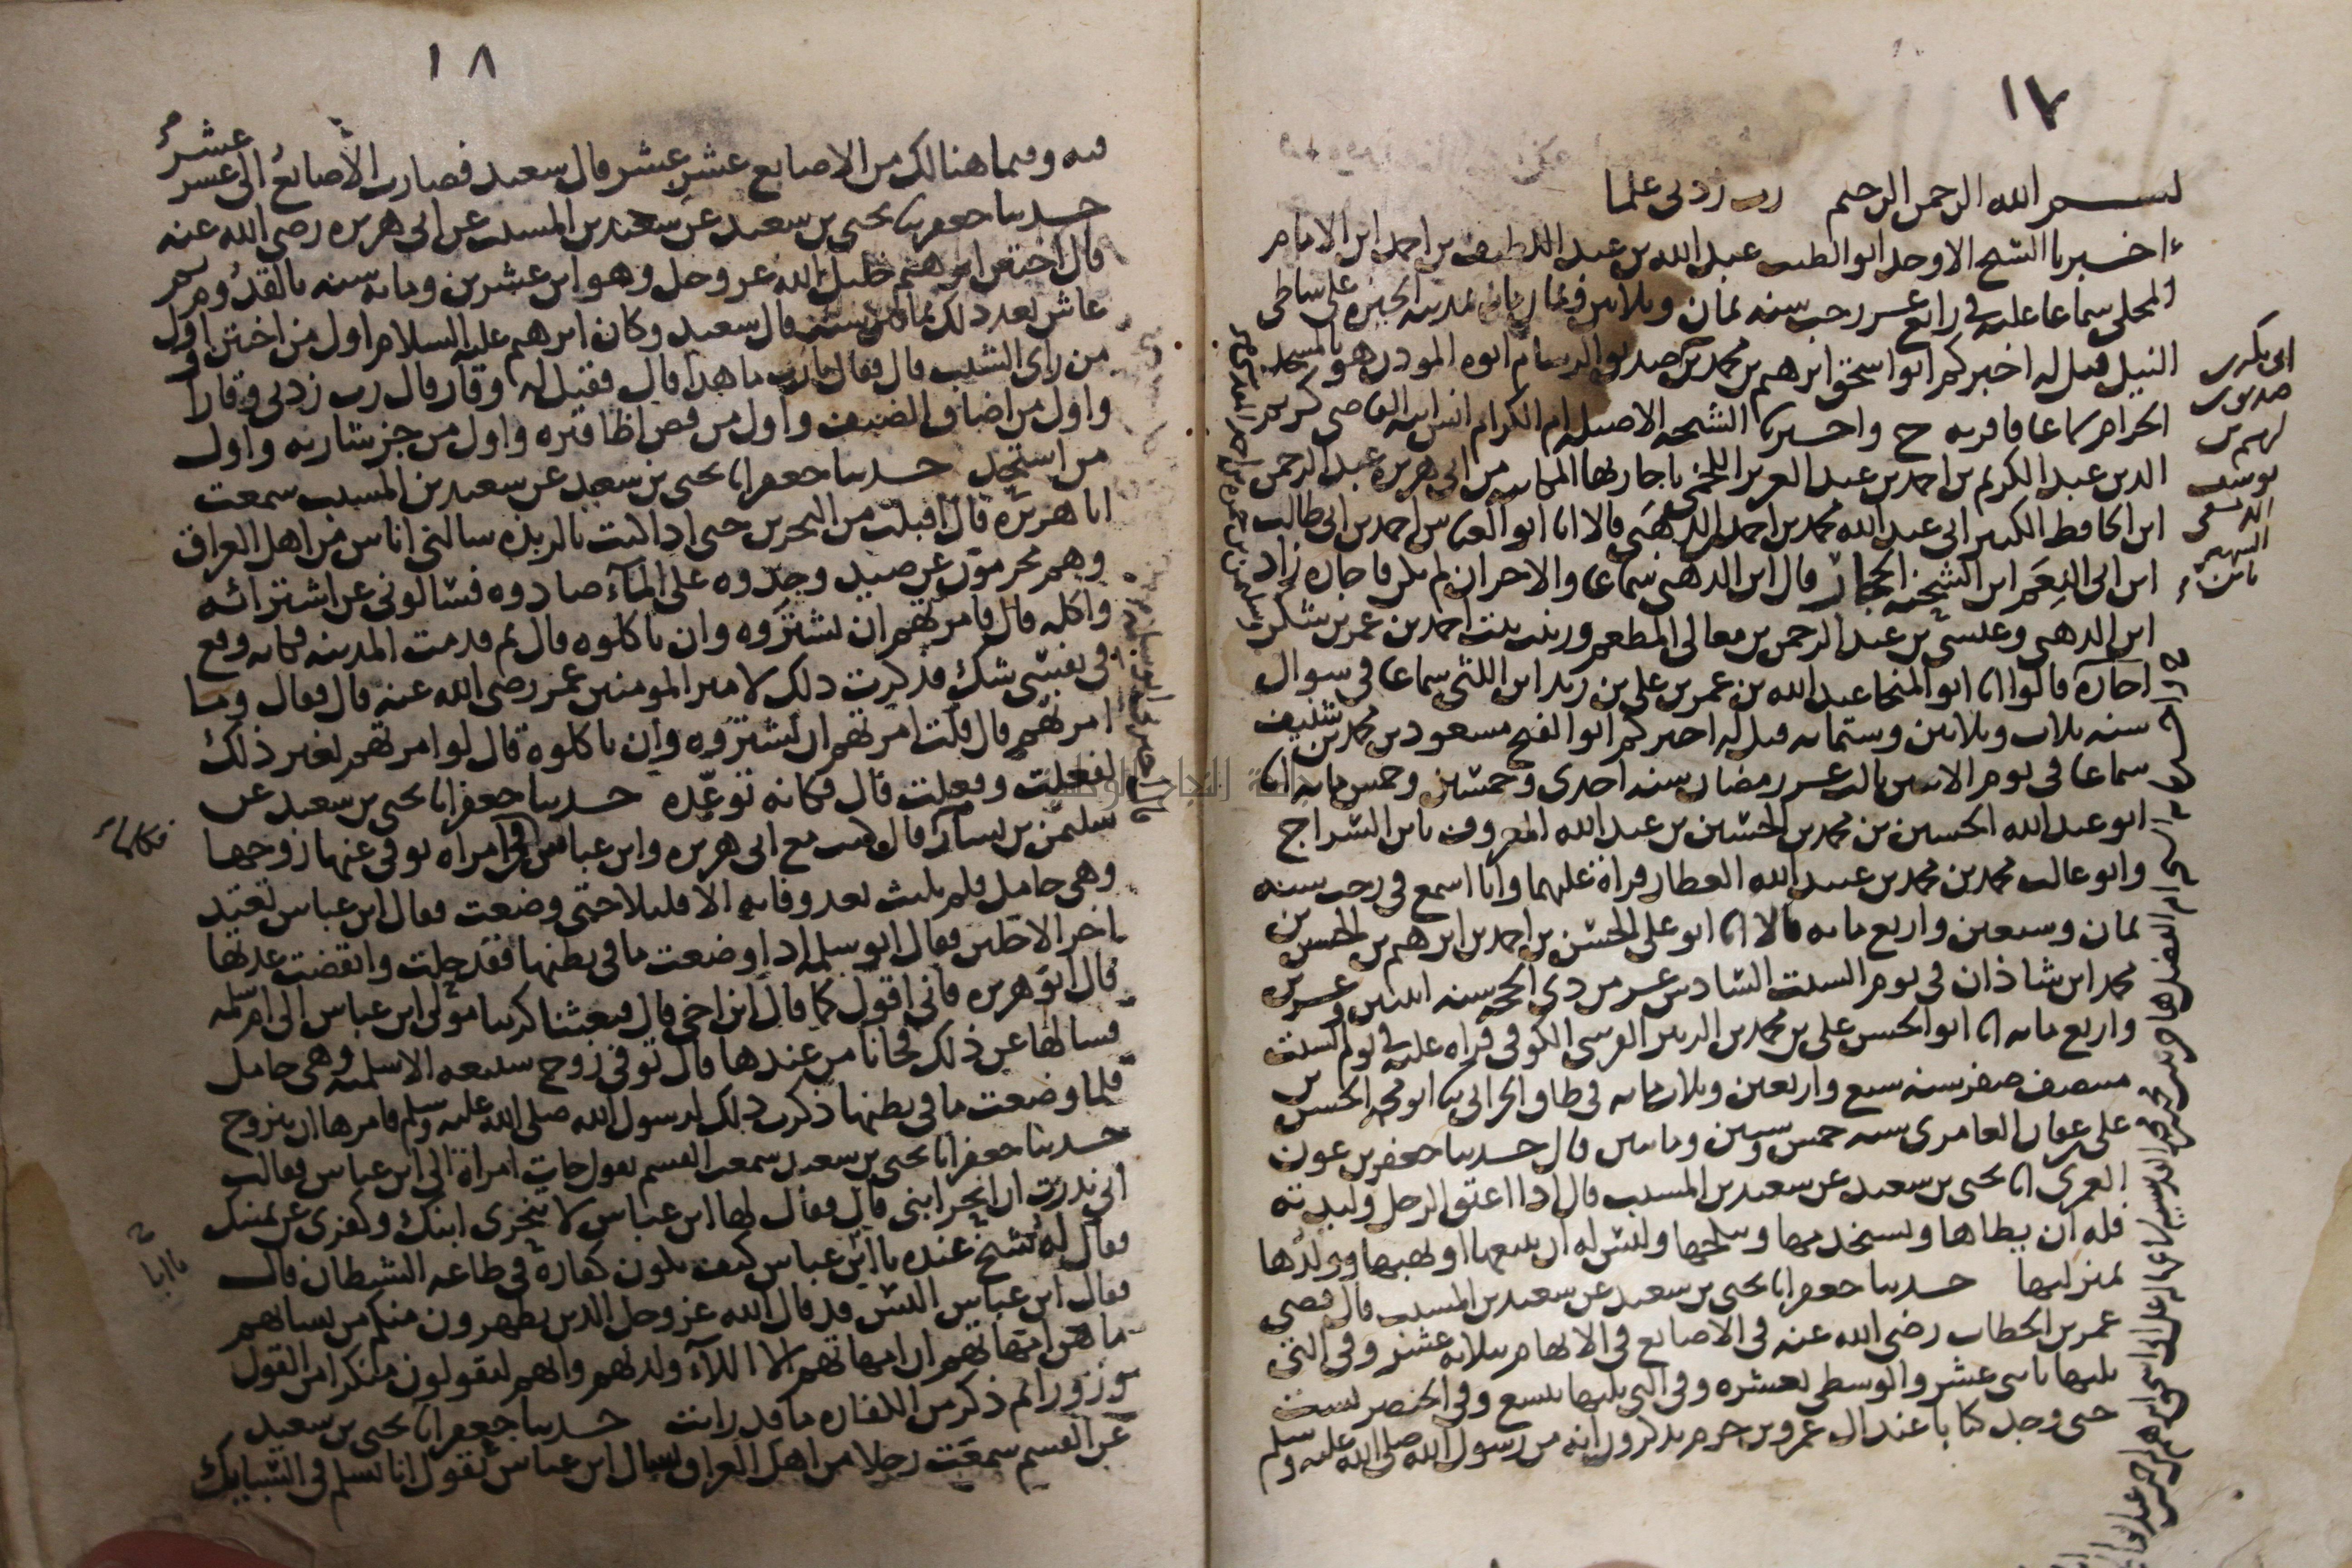 ١٧
بسم الله الرحمن الرحيم رب زدني علما
اخبرنا الشيخ الاوحد ابو الطيب عبد الله بن عبد اللطيف بن احمد ابن الامام
المحلي سماعا عليه في رابع عشر رجب سنه ثمان وثلاثين وثمان مايه بمدينه الجيزه على شاطي
النيل قيل له اخبركم ابو اسحق ابرهيم بن محمد بن صديق الرسام ابوه المودن هو بالمسجد
الحرام سماعا فاقر به ح واخبرتنا الشيخه الاصيله ام الكرام انس ابنه القاضي كريم
الدين عبد الكريم بن احمد بن عبد العزيز اللخمي باجازتها من ابي هريره عبد الرحمن
ابن الحافظ الكبير ابي عبد الله محمد بن احمد الذهبي قالا انا ابو العباس احمد بن ابي طالب
ابن ابي النعم ابن الشحنه الحجار قال ابن الذهبي سماعا والاخر ان لم يكن فاجازه زاد
ابن الذهبي وعيسى بن عبد الرحمن بن معالي المطعم وزينب بنت احمد بن عمر بن شكر
اجازه قالوا انا ابو المنجا عبد الله بن عمر بن علي بن زيد ابن اللتي سماعا في شوال
سنه ثلاث وثلاثين وستمايه قيل له اخبركم ابو الفتح مسعود بن محمد بن شنيف
سماعا في يوم الاثنين ثالث عشر رمضان سنه احدى وخمسين وخمس مايه انا
ابو عبد الله الحسين بن محمد بن الحسين بن عبد الله المعروف بابن السراج
وابو غالب محمد بن محمد بن عبيد الله العطار قراة عليهما وانا اسمع في رجب سنه
ثمان وسبعين واربع مايه قالا انا ابو علي الحسن بن احمد بن ابرهيم بن الحسن بن
محمد ابن شاذان في يوم السبت السادس عشر من ذي الحجه سنه اثنين وعشرين
واربع مايه انا ابو الحسن علي بن محمد بن الزبير القرشي الكوفي قراه عليه في يوم السبت
منتصف صفر سنه سبع واربعين وثلاثمايه في طاق الحراني ثنا ابو محمد الحسن بن
علي بن عفان العامري سنه خمس وستين ومايتين قال حدثنا جعفر بن عون
العمري انا يحيى بن سعيد عن سعيد بن المسيب قال اذا اعتق الرجل وليدته
فله ان يطاها ويستخدمها وينكحها وليس له ان يبيعها او يهبها وولدها
بمنزلتها حدثنا جعفر انا يحيى بن سعيد عن سعيد بن المسيب قال قضى
عمر بن الخطاب رضي الله عنه في الاصابع في الابهام بثلاثه عشر وفي التي
يليها باثني عشر والوسطى بعشره وفي التي يليها بتسع وفي الخنصر بست
حتى وجد كتابا عند ال عمرو بن حزم يذكرون انه من رسول الله صلى الله عليه وسلم
١٨
فيه وفيما هنالك من الاصابع عشر عشر قال سعيد فصارت الاصابع الى عشر عشر
حدثنا جعفر ثنا يحيى بن سعيد عن سعيد بن المسيب عن ابي هريره رضي الله عنه
قال اختتن ابرهيم خليل الله عز وجل وهو ابن عشرين ومايه سنه بالقدوم ثم
عاش بعد ذلك ثمانين سنه قال سعيد وكان ابرهيم عليه السلام اول من اختتن واول
من راى الشيب قال فقال يا رب ما هذا قال فقيل له وقار قال رب زدني وقارا
واول من اضاف الضيف واول من قص اظافره واول من جز شاربه واول
من استحد حدثنا جعفر انا يحيى بن سعيد عن سعيد بن المسيب سمعت
ابا هريره قال اقبلت من البحرين حتى اذا كنت بالربذه سالني اناس من اهل العراق
وهم محرمون عن صيد وجدوه على المآء صادوه فسالوني عن اشترائه
واكله قال فامرتهم ان يشتروه وان ياكلوه قال ثم قدمت المدينه فكانه وقع
في نفسي شك فذكرت ذلك لامير المومنين عمر رضي الله عنه قال فقال وما
امرتهم قال قلت امرتهم ان يشتروه وان ياكلوه قال لو امرتهم بغير ذلك
لفعلت وفعلت قال فكانه توعّده حدثنا جعفر انا يحيى بن سعيد عن
سليمن بن يسار قال كنت مع ابي هريره وابن عباس في امراه توفي عنها زوجها
وهي حامل فلم يلبث بعد وفاته الا قليلا حتى وضعت فقال ابن عباس تعتد
اخر الاجلين فقال ابو سلمه اذا وضعت ما في بطنها فقد حلت وانقضت عدتها
قال ابو هريره فاني اقول كما قال ابن اخي قال فبعثنا كريبا مولى ابن عباس الى ام سلمه
فسالها عن ذلك فجانا من عندها قال توفي زوج سبيعه الاسلميه وهي حامل
فلما وضعت ما في بطنها ذكرت ذلك لرسول الله صلى الله عليه وسلم فامرها ان تتزوج
حدثنا جعفر انا يحيى بن سعيد سمعت القسم يقول جات امراة الى ابن عباس فقالت
اني نذرت ان انحر ابني قال فقال لها ابن عباس لا تنحري ابنك وكفري عن يمينك
فقال له شيخ عنده يا ابن عباس كيف يكون كفارة في طاعه الشيطان قال
فقال ابن عباس اليس قد قال الله عز وجل الذين يظهرون منكم من نسائهم
ما هن امهاتهم ان امهاتهم الا اللآء ولدنهم وانهم ليقولون منكرا من القول
وزورا ثم ذكر من الكفاره ما قد رايت حدثنا جعفر انا يحيى بن سعيد
عن القسم سمعت رجلا من اهل العراق يسال ابن عباس يقول انا نسلم في السبايك